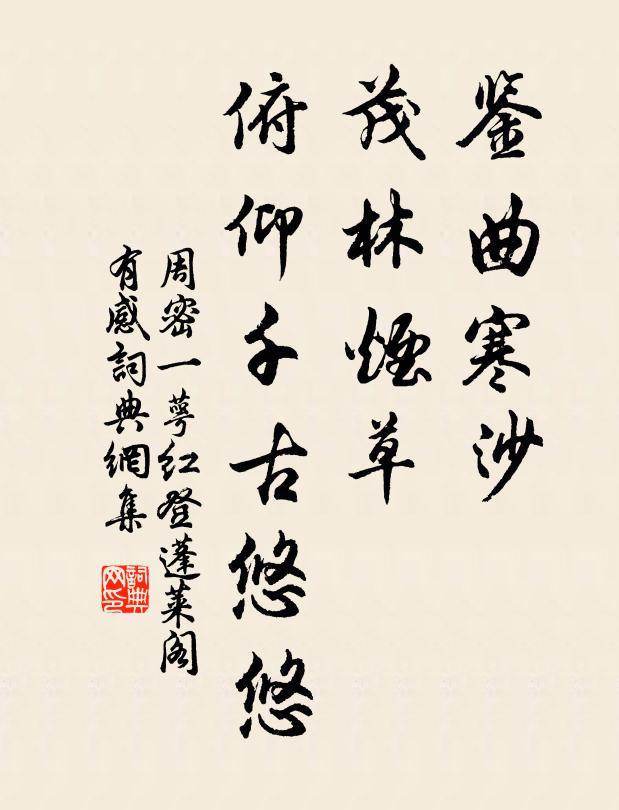 鉴曲寒沙
茂林煙草
俯仰千古悠悠
周密一萼红登蓬莱阁
有感詞典網集
詞典
网印